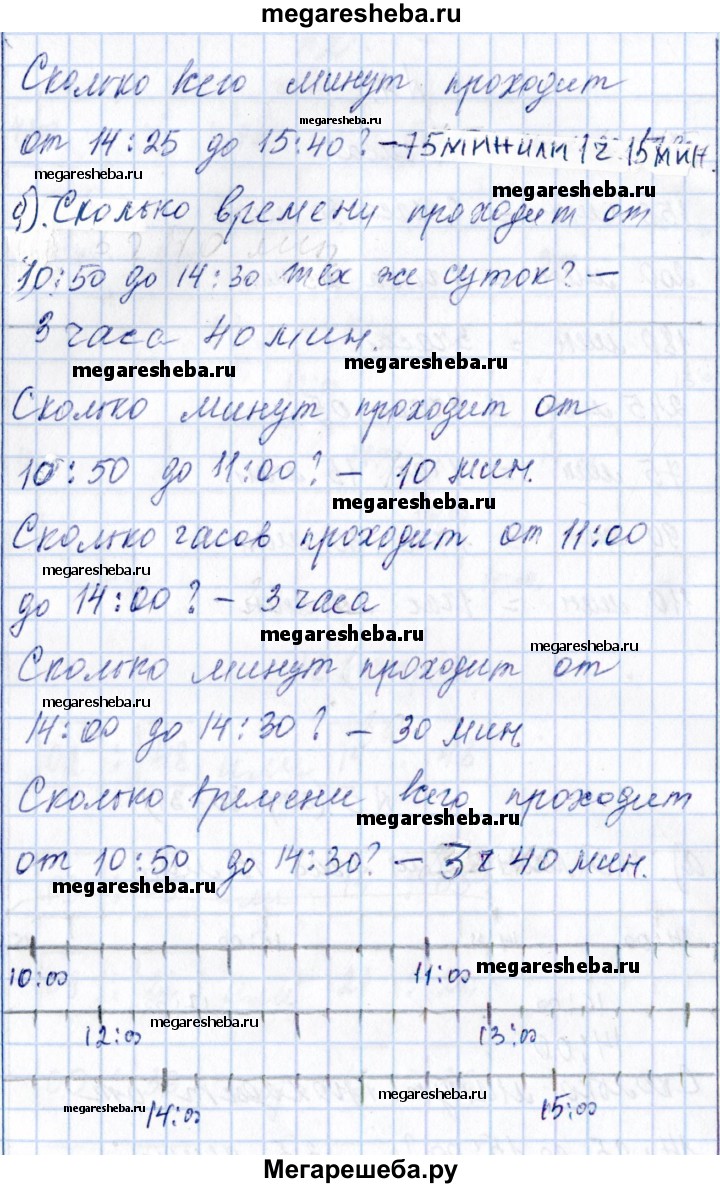 megaresheba.ru
Сколько всего минут проходит
megaresheba.ru
от 14:25 до 15:40? – 75 мин или 1 ч 15 мин.
megaresheba.ru
megaresheba.ru
б). Сколько времени проходит от
10:50 до 14:30 тех же суток? –
3 часа 40 мин.
megaresheba.ru
megaresheba.ru
Сколько минут проходит от
10:50 до 11:00? – 10 мин.
megaresheba.ru
Сколько часов проходит от 11:00
megaresheba.ru
до 14:00? – 3 часа
megaresheba.ru
megaresheba.ru
Сколько минут проходит от
megaresheba.ru
14:00 до 14:30? – 30 мин
Сколько времени всего проходит
megaresheba.ru
от 10:50 до 14:30? – 3 ч 40 мин.
megaresheba.ru
10:00 11:00 megaresheba.ru
12:00 megaresheba.ru 13:00
megaresheba.ru
megaresheba.ru
14:00 15:00
Мегарешеба.ру